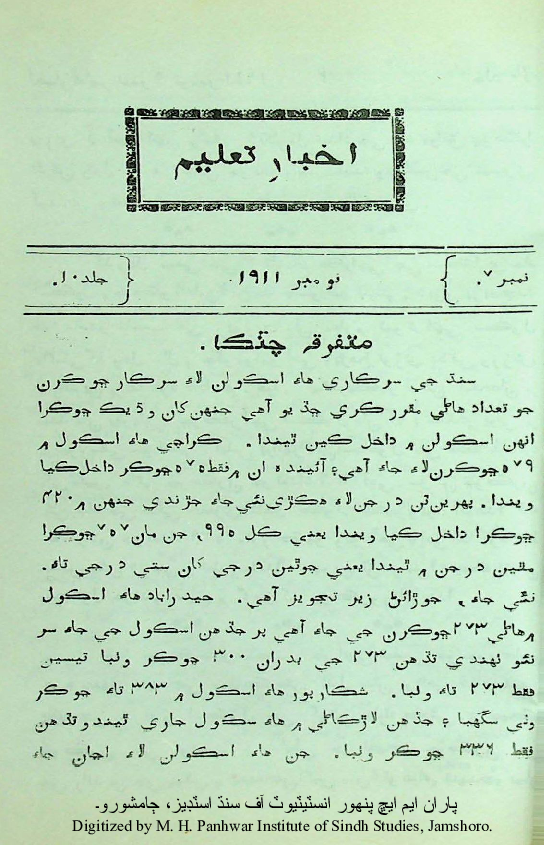 اخبارِ تعليم
نمبر ٧.
نومبر ١٩١١
جلد ١٠.
متفرقہ چٽڪا.
سنڌ جي سرڪاري هاءِ اسڪولن لاءِ سرڪار ڇوڪرن
جو تعداد هاڻي مقرر ڪري ڇڏيو آهي جنهن کان وڌيڪ ڇوڪرا
انهن اسڪولن ۾ داخل ڪين ٿيندا. ڪراچي هاءِ اسڪول ۾
٥٧٩ ڇوڪرن لاءِ جاءِ آهي؛ آئينده ان ۾ فقط ٥٧٥ ڇوڪر داخل ڪيا
ويندا. پهرين ٽن درجن لاءِ هڪڙي نئي جاءِ جڙندي جنهن ۾ ٤٢٠
ڇوڪرا داخل ڪيا ويندا يعني ڪل ٩٩٥, جن مان ٥٧٥ ڇوڪرا
مٿين درجن ۾ ٿيندا يعني چوٿين درجي کان ستي درجي تاءِ.
نئي جاءِ جوڙائڻ زير تجويز آهي. حيدراباد هاءِ اسڪول
۾ هاڻي ٢٧٣ ڇوڪرن جي جاءِ آهي پر جڏهن اسڪول جي جاءِ سر
نئو ٺهندي تڏهن ٢٧٣ جي بدران ٣٠٠ ڇوڪر وٺبا تيسين
فقط ٢٧٣ تاءِ وٺبا. شڪارپور هاءِ اسڪول ۾ ٣٨٣ تاءِ ڇوڪر
وٺي سگهبا ۽ جڏهن لاڙڪاڻي ۾ هاءِ سڪول جاري ٿيندو تڏهن
فقط ٣٣٦ ڇوڪر وٺبا. جن هاءِ اسڪولن لاءِ اڃان جاءِ
پاران ايم ايڇ پنهور انسٽيٽيوٽ آف سنڌ اسٽڊيز، ڄامشورو۔
Digitized by M. H. Panhwar Institute of Sindh Studies, Jamshoro.